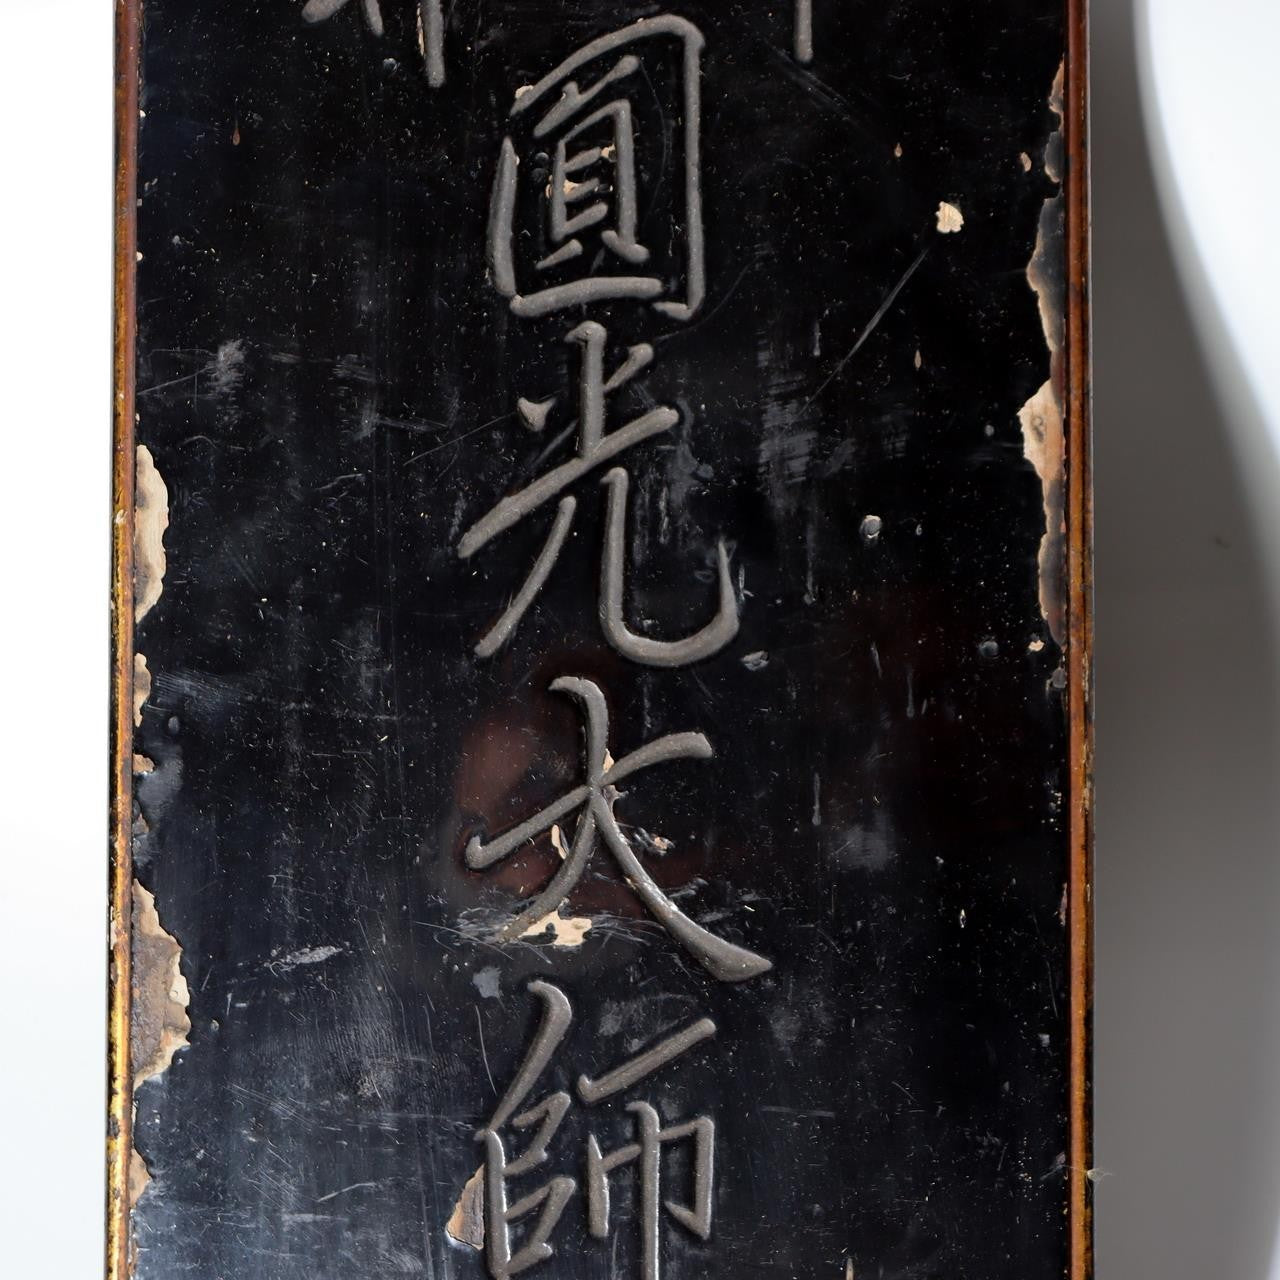 圓光大師